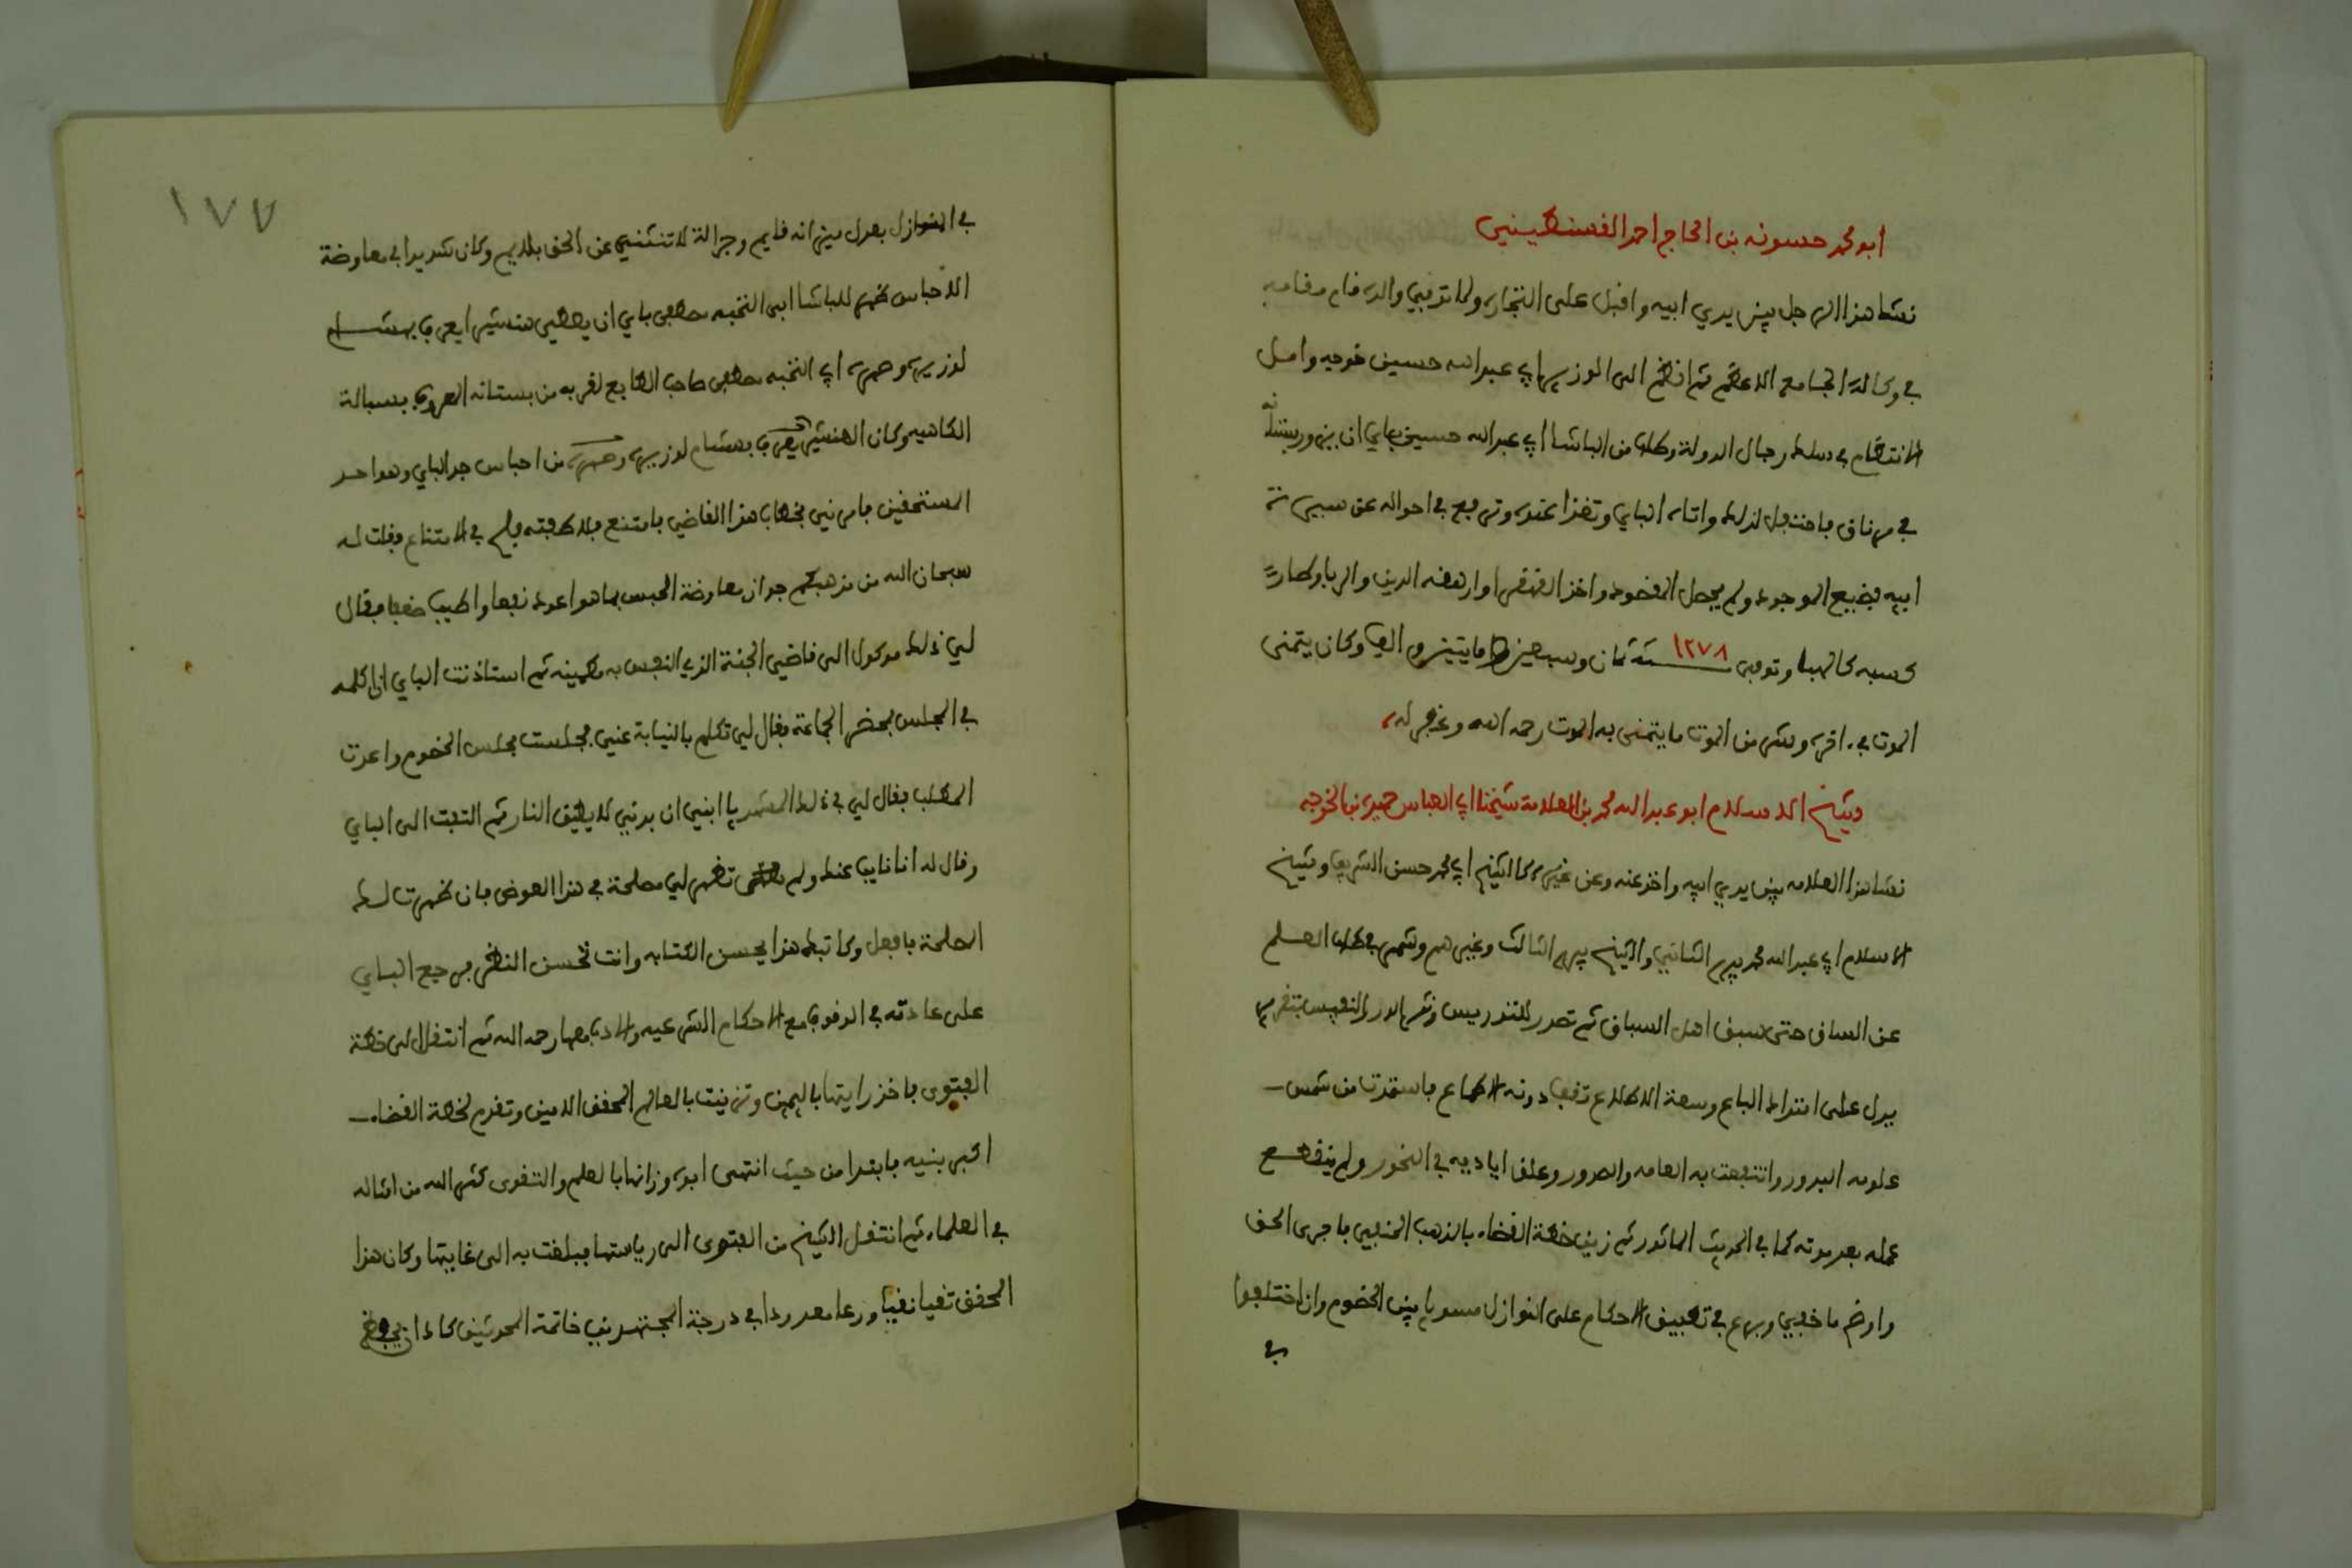 ابو محمد حسونه بن الحاج احمد القسنطيني
نشا هذا الرجل بين يدي ابيه واقبل على التجاره ولما توفي والده قام مقامه
في وكالة الجامع الاعظم ثم انضم الى الوزير ابي عبد الله حسين خوجه وامل
الانتظام في سلك رجال الدولة وطلب من الباشا ابي عبد الله حسين باي ان يزوره ببستانه
في مرناق فاحتفل لذلك واتاه الباي وتغذا عنده وترفع في احواله عن سيرة
ابيه فضيع الموجود ولم يحصل المقصود واخذ القهقرا وارهقه الدين والربا وصار
كسبه كالهبا وتوفي ١٢٧٨ سنة ثمان وسبعين ومايتين والف وكان يتمنى
الموت في اخره وشر من الموت ما يتمنى به الموت رحمه الله وغفر له
شيخ الاسلام ابو عبد الله محمد بن العلامة شيخنا ابي العباس حميده بن الخوجه
نشا هذا العلامه بين يدي ابيه واخذ عنه وعن غيره كالشيخ ابي محمد حسن الشريف وشيخ
الاسلام ابي عبد الله محمد بيرم الثاني والشيخ بيرم الثالث وغيرهم وشمر في طلب العلم
عن الساق حتى سبق اهل السباق ثم تصدر للتدريس ونثر الدر النفيس بتقرير
يدل على امتداد الباع وسعة الاطلاع تقف دونه الاطماع فاستمدت من شمس
علومه البدور وانتفعت به العامه والصدور وعلق اياديه في النحور ولم ينقطع
عمله بعد موته كما في الحديث الماثور ثم زين خطة القضاء بالمذهب الحنفي فاجرى الحق
واوضح ما خفي وبرع في تطبيق الاحكام على النوازل مسويا بين الخصوم وان اختلفوا
في
١٧٧
في المنازل بعدل ميزانه قايم وجزالة لا تنثني عن الحق بلايم وكان شديدا في معاوضة
الاحباس ظهر للباشا ابي النخبه مصطفى باي ان يعطي هنشير ايعرف بهشام
لوزيره وصهره ابي النخبه مصطفى صاحب الطابع لقربه من بستانه المعروف بسبالة
الكاهيه وكان الهنشير يعرف بهشام لوزيره وصهره من احباس جد الباي وهو احد
المستحقين فامرني بخطاب هذا القاضي فامتنع فلاطفته فلج في الامتناع فقلت له
سبحان الله من مذهبكم جواز معاوضة الحبس بما هو اعود نفعا واطيب صقعا فقال
لي ذلك موكول الى قاضي الجنة الذي النفس به مطمينه ثم استاذنت الباي ان اكلمه
في المجلس بمحضر الجماعة فقال لي تكلم بالنيابة عني فجلست مجلس الخصوم واعدت
المطلب فقال لي في ذلك المشهد يا ابني ان بدني لا يطيق النار ثم التفت الى الباي
وقال له انا نايب عنك ولم تظهر لي مصلحة في هذا العوض فان ظهرت لك
المصلحة فافعل وكاتبك هذا يحسن الكتابه وانت تحسن النظر فرجع الباي
على عادته في الوقوف مع الاحكام الشرعيه والادب معها رحمه الله ثم انتقل الى خطة
الفتوى فاخذ رايتها باليمين وتزينت بالعالم المحقق الامين وتقدم لخطة القضاء
اكبر بنيه فابتدا من حيث انتهى ابوه وزانها بالعلم والتقوى كثر الله من امثاله
في العلماء ثم انتقل الشيخ من الفتوى الى رياستها فبلغت به الى غايتها وكان هذا
المحقق تقيا نقيا ورعا معدودا في درجة المجتهدين خاتمة المحدثين كلما